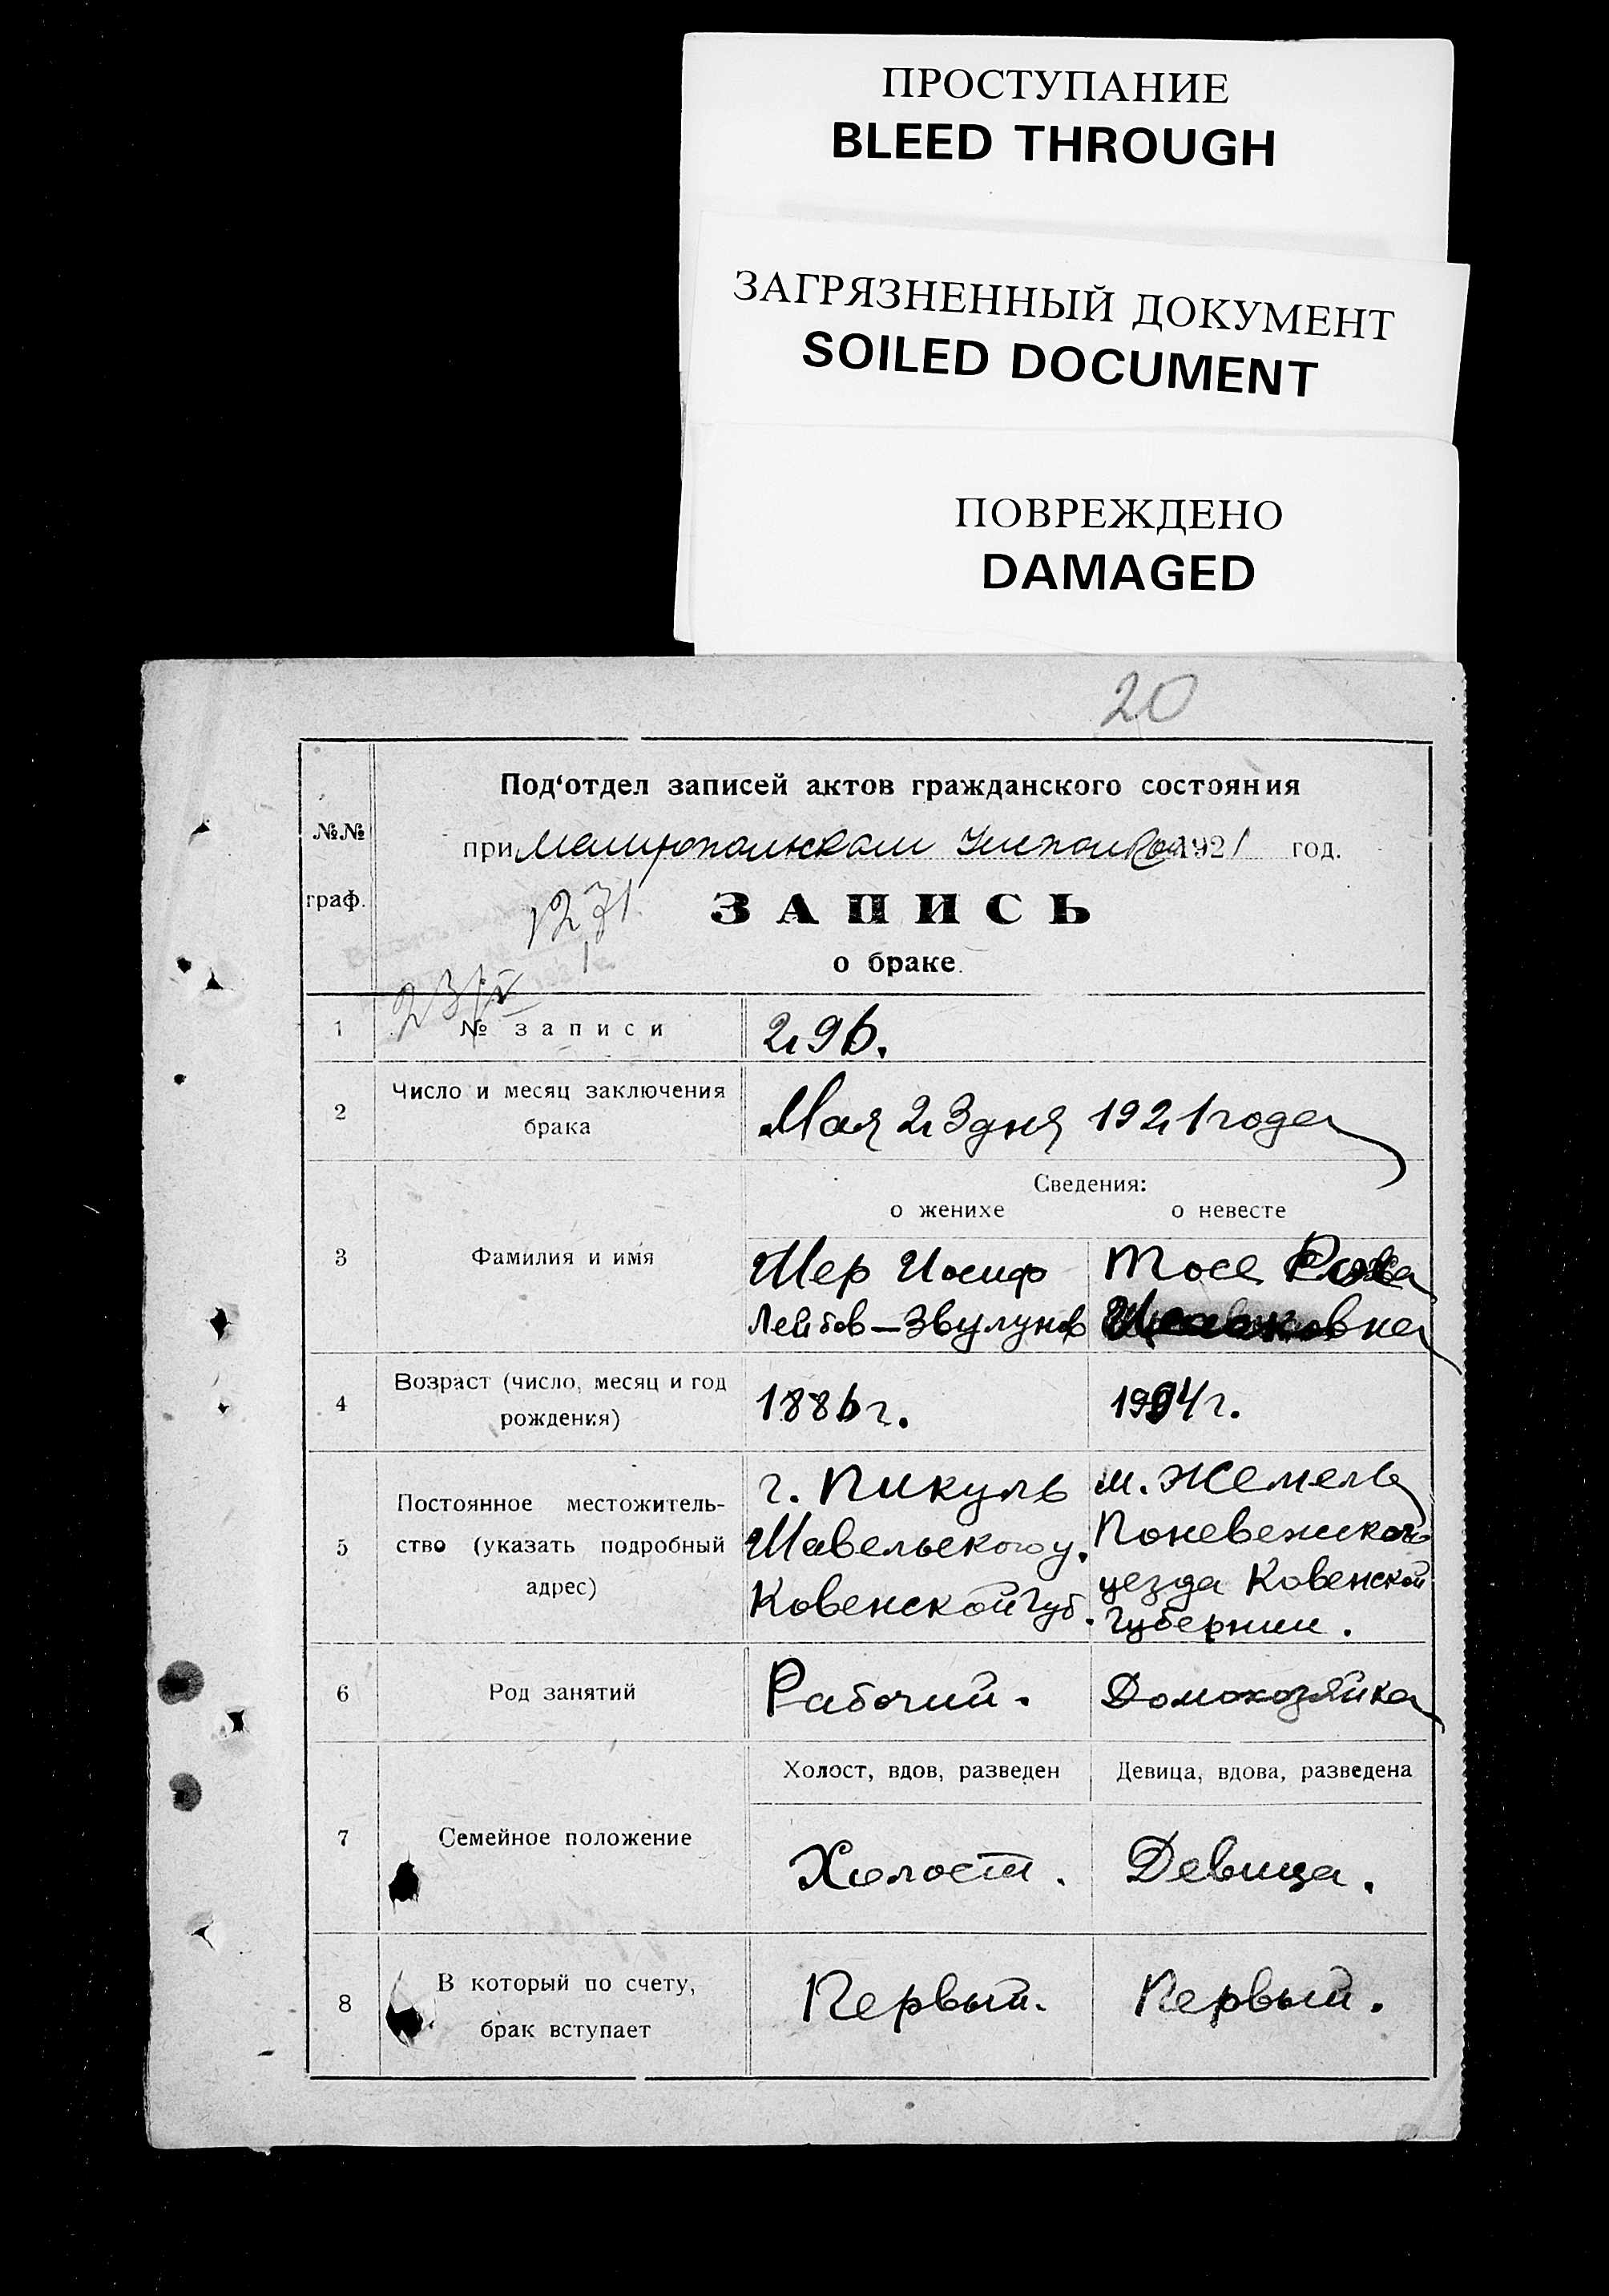 ПРОСТУПАНИЕ
BLEED THROUGH
ЗАГРЯЗНЕННЫЙ ДОКУМЕНТ
SOILED DOCUMENT
ПОВРЕЖДЕНО
DAMAGED
20
Под‘отдел записей актов гражданского состояния
№№
при 1921 год.
граф.
1231
ЗАПИСЬ
о браке.
23/V
1 № записи 296.
2 Число и месяц заключения
брака
Мая 23 дня 1921 года
Сведения:
о женихе о невесте
3 Фамилия и имя
Шер Иосиф
Лейбов—Звулунов
Тосе
4 Возраст (число, месяц и год
рождения)
1886 г. 1994 г.
5 Постоянное местожитель-
ство (указать подробный
адрес)
г. Пикуль
Шавельского у.
Ковенской Губ.
м. Жемель
Поневежского
уезда Ковенской
Губернии.
6 Род занятий Рабочий. Домохозяйка
Холост, вдов, разведен Девица, вдова, разведена
7 Семейное положение
Холост. Девица.
8 В который по счету,
брак вступает
Первый. Первый.